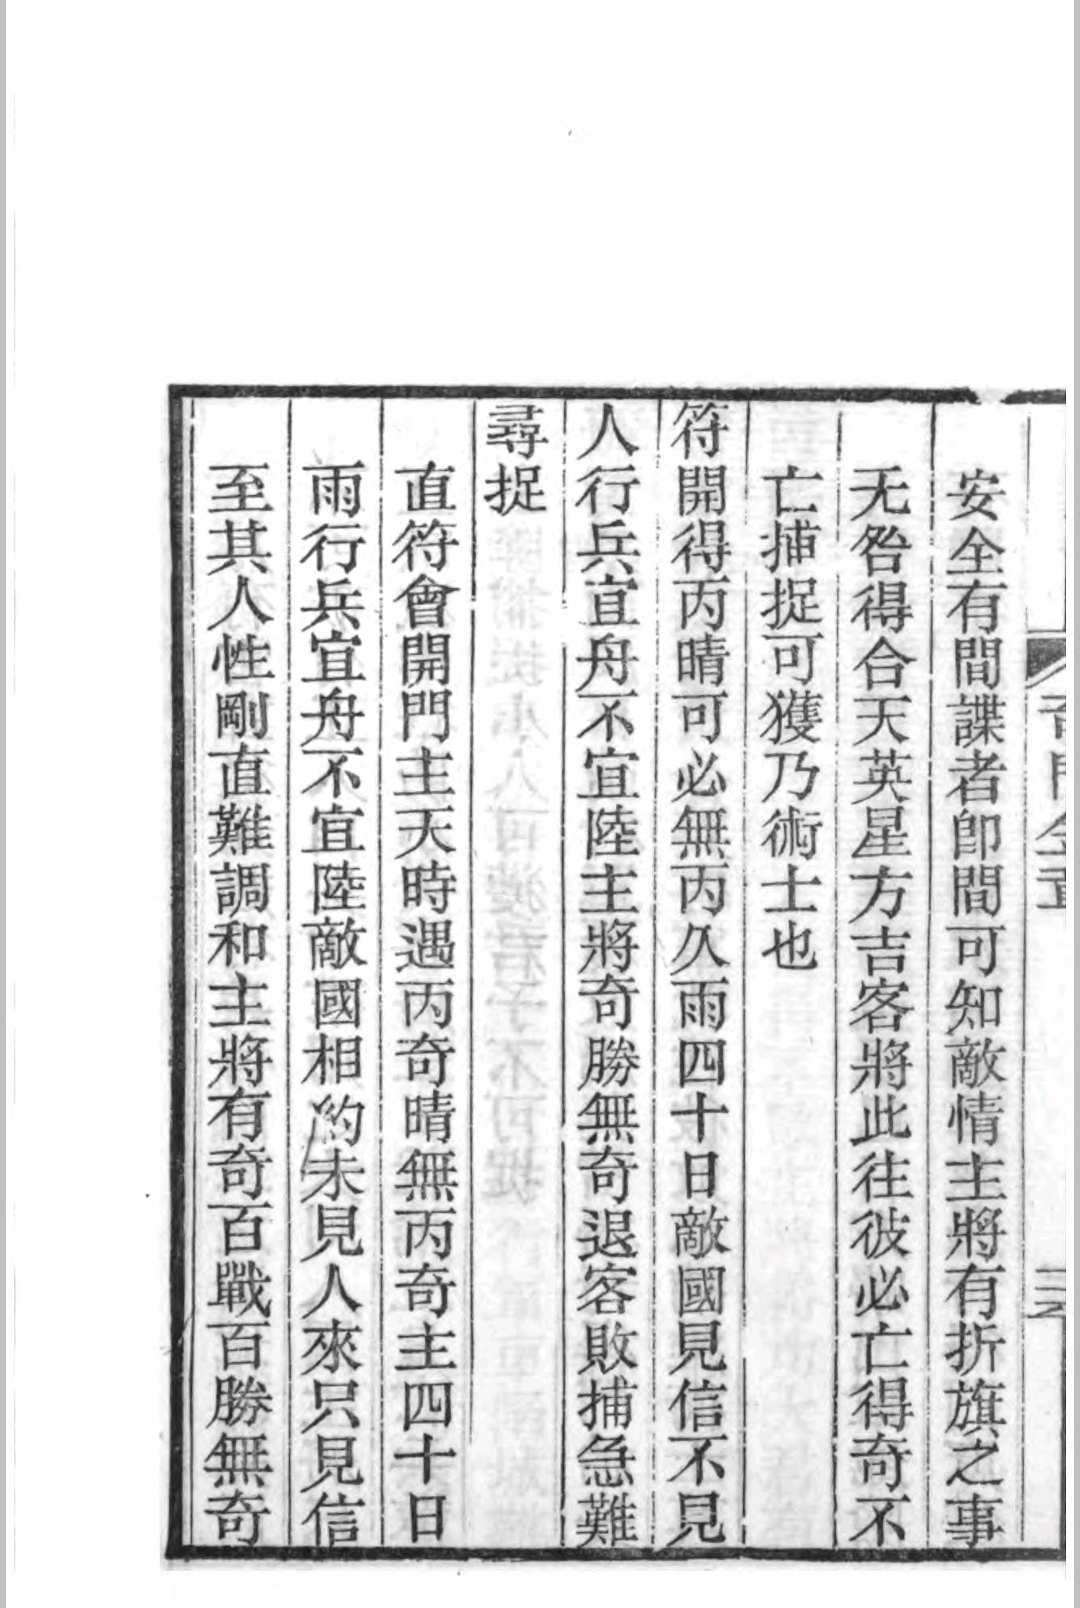 安全有間諜者卽間可知敵情主將有折旗之事
无咎得合天英星方吉客將此往彼必亡得奇不
亡捕捉可獲乃術士也
符開得丙晴可必無丙久雨四十日敵國見信不見
人行兵宜舟不宜陸主將奇勝無奇退客敗捕急難
尋捉
直符會開門主天時遇丙奇晴無丙奇主四十日
雨行兵宜舟不宜陸敵國相約未見人來只見信
至其人性剛直難調和主將有奇百戰百勝無奇